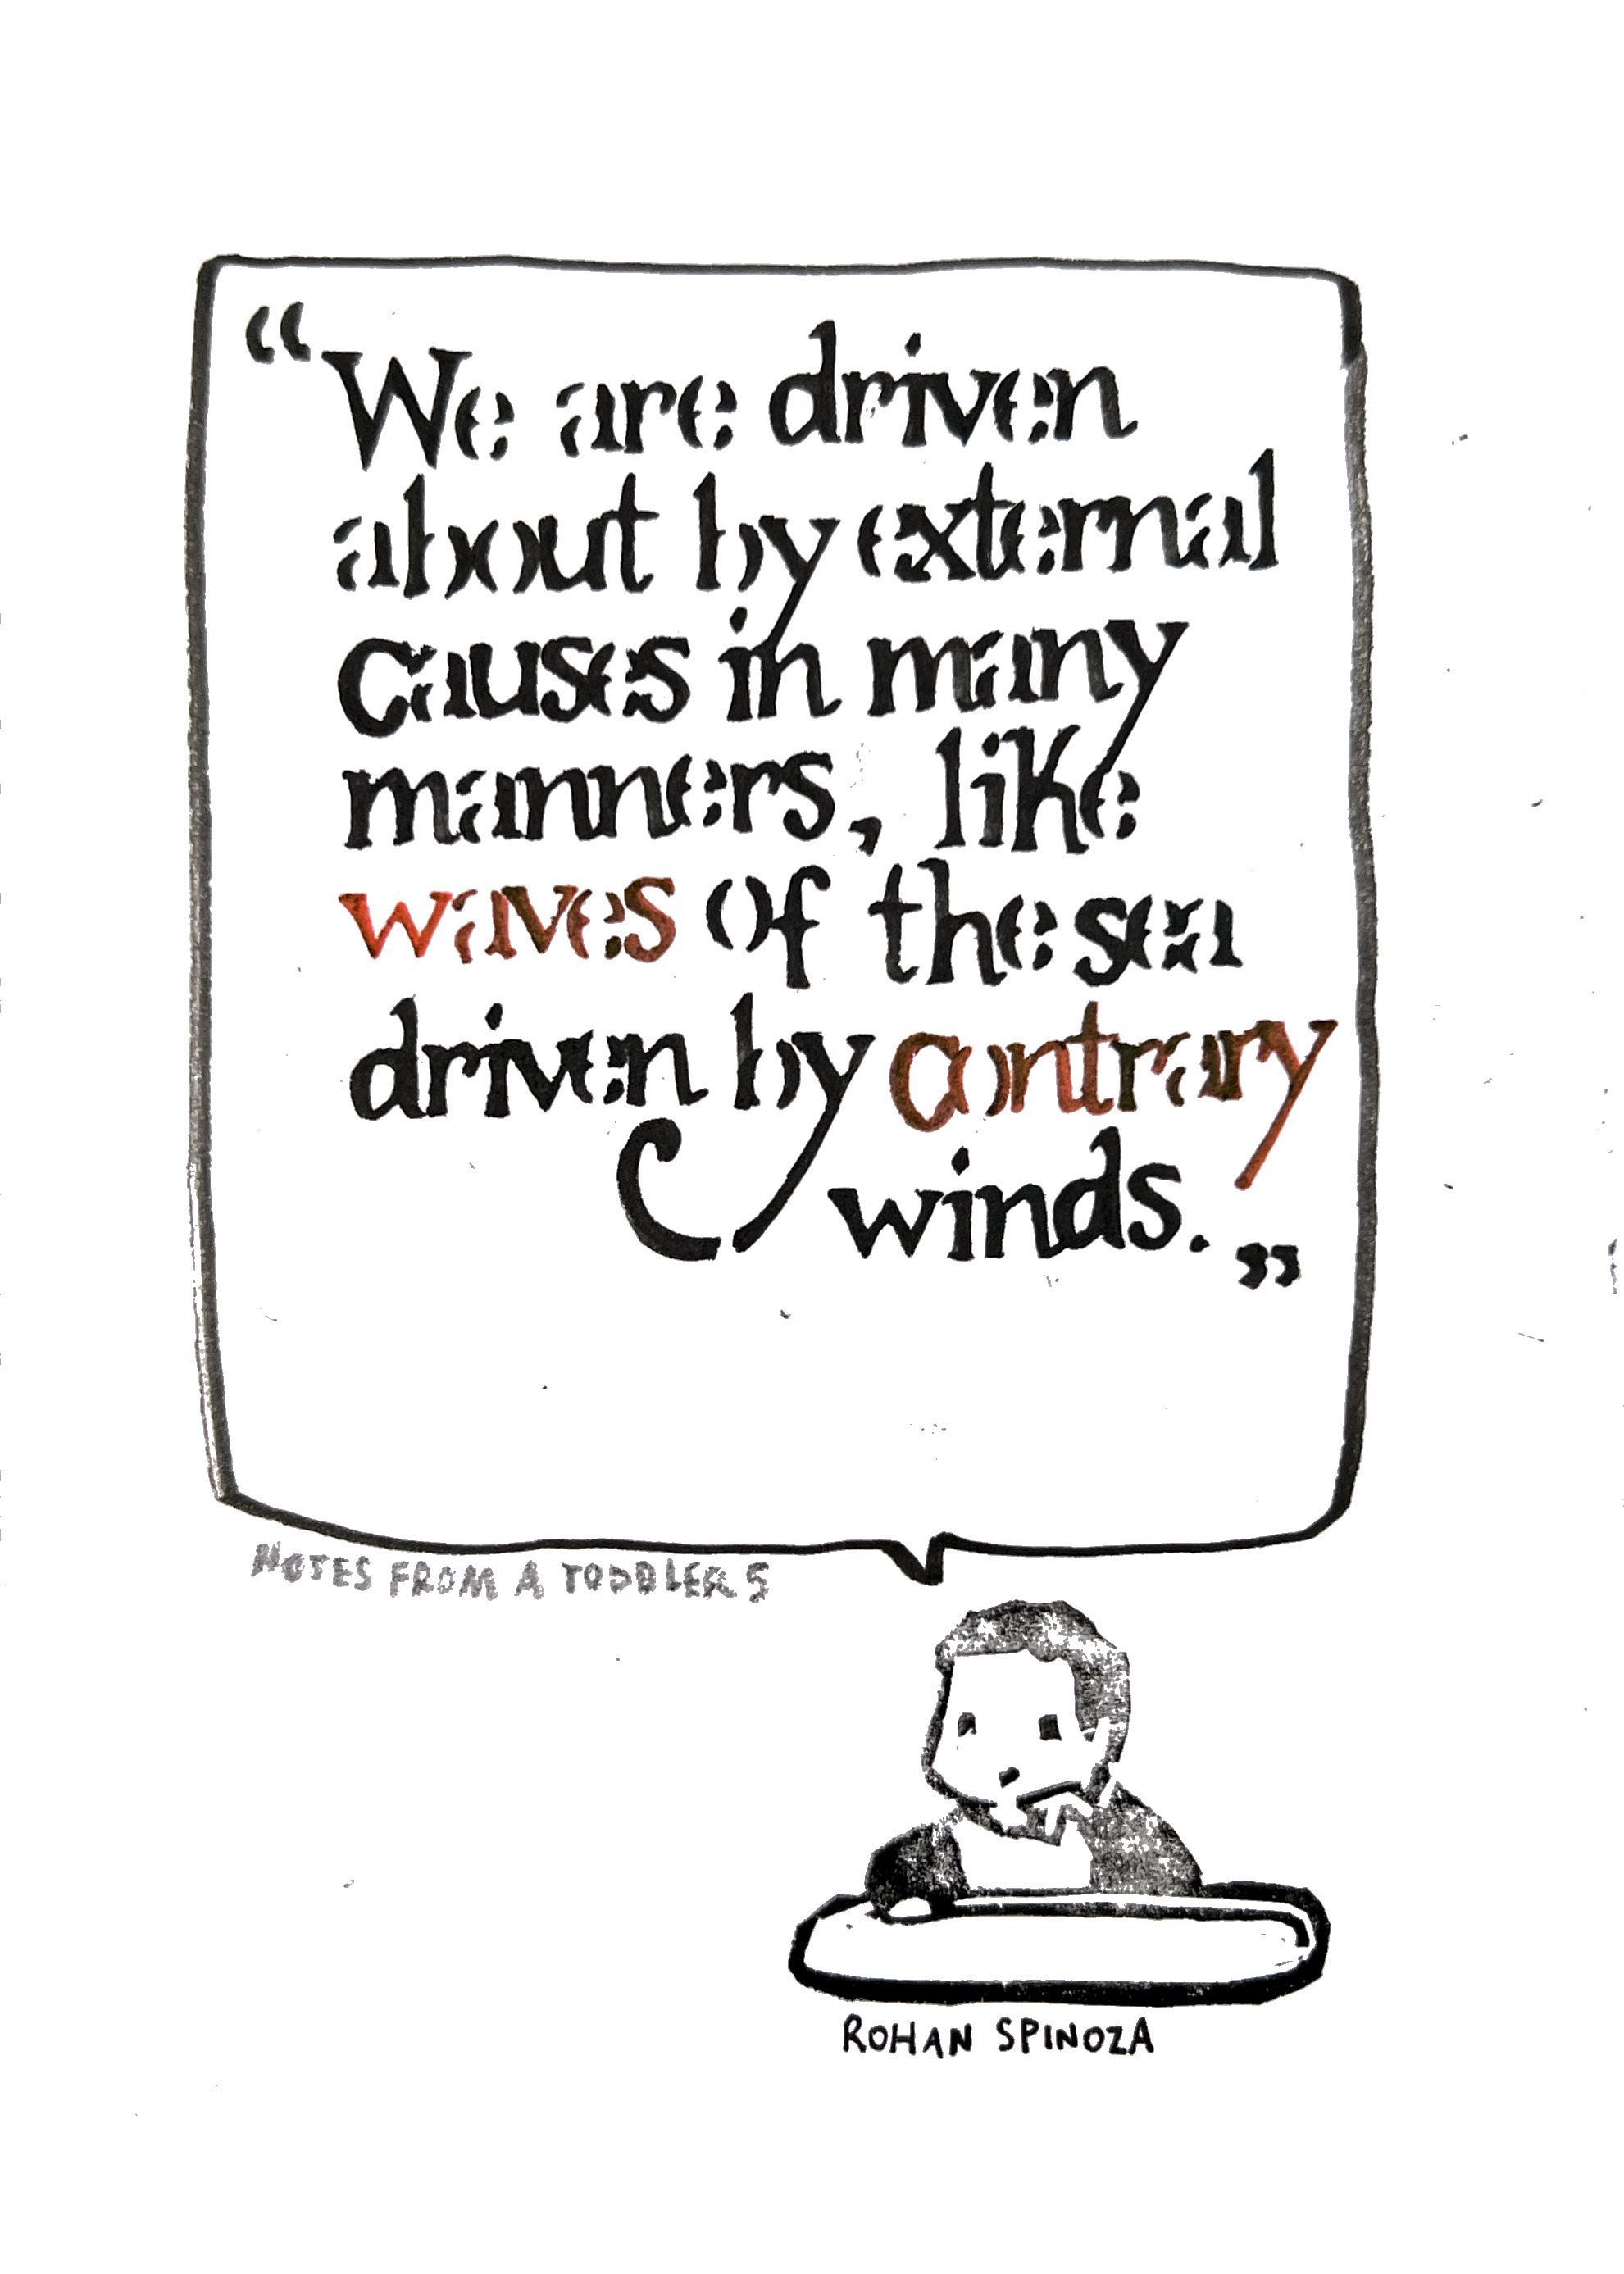 “We are driven
about by external
causes in many
manners, like
waves of the sea
driven by contrary
winds.”
NOTES FROM A TODDLER 5
ROHAN SPINOZA